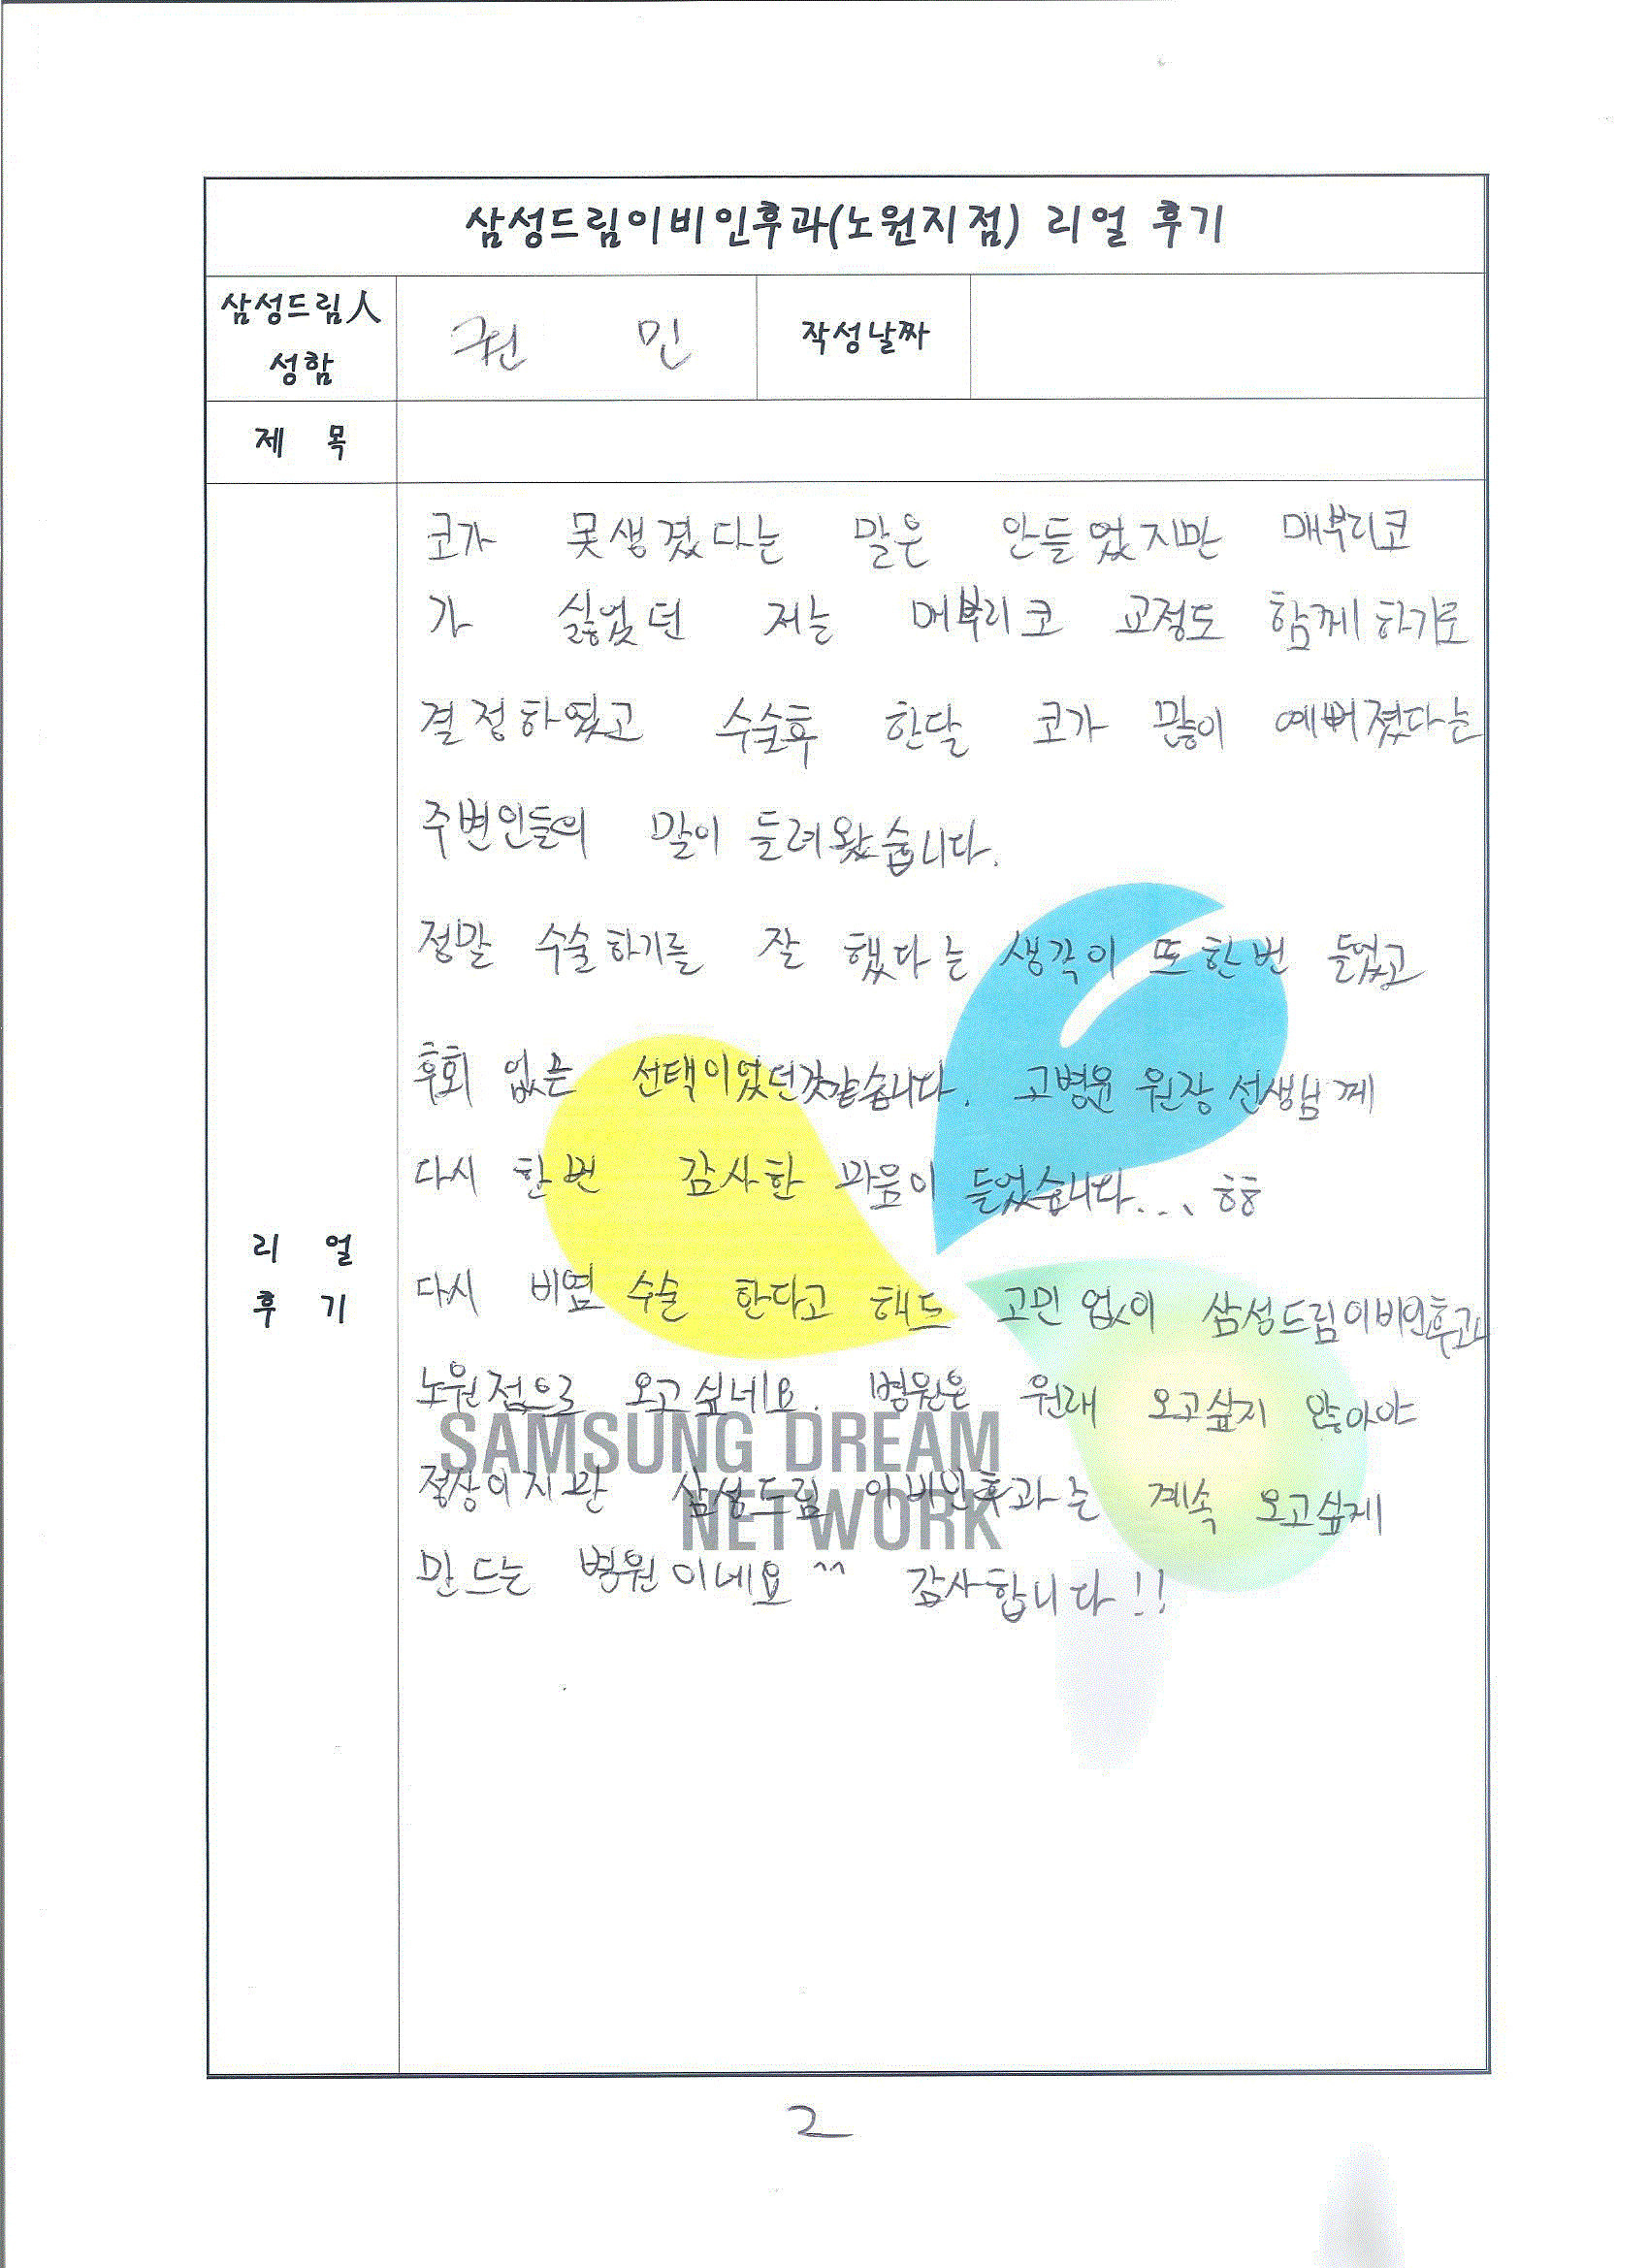 삼성드림이비인후과(노원지점) 리얼 후기
삼성드림人 성함
권 민
작성날짜
제 목
리 얼 후 기
코가 못생겼다는 말은 안들었지만 매부리코
가 싫었던 저는 매부리코 교정도 함께하기로
결정하였고 수술후 한달 코가 많이 예뻐졌다는
주변인들의 말이 들려왔습니다.
정말 수술하기를 잘 했다는 생각이 또한번 들었고
후회 없는 선택이었던것같습니다. 고병윤 원장 선생님께
다시 한번 감사한 마음이 들었습니다... ㅎㅎ
다시 비염 수술 한다고 해도 고민 없이 삼성드림이비인후과
노원점으로 오고싶네요. 병원은 원래 오고싶지 않아야
정상이지만 삼성드림 이비인후과는 계속 오고싶게
만드는 병원이네요 ^^ 감사합니다!!
SAMSUNG DREAM
NETWORK
2